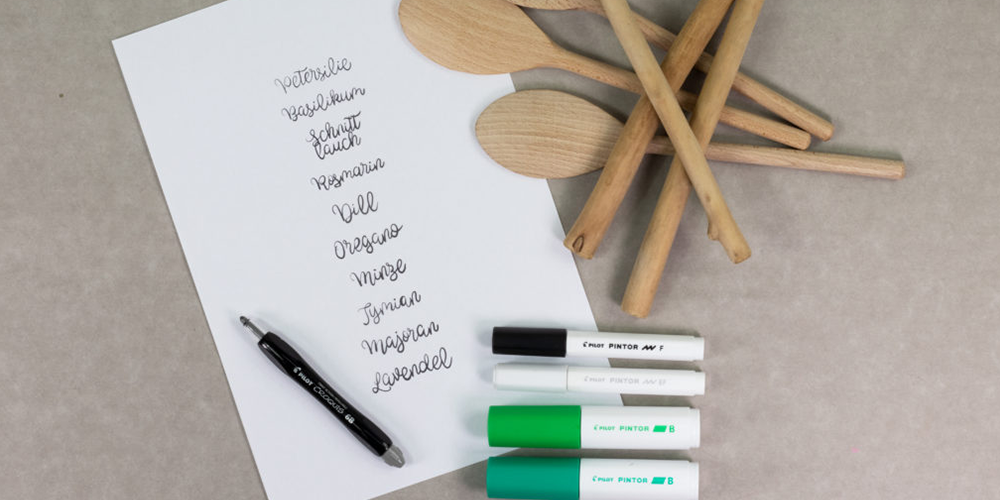 Petersilie
Basilikum
Schnitt
lauch
Rosmarin
Dill
Oregano
Minze
Tymian
Majoran
Lavendel
PILOT CROQUIS 6B
PILOT PINTOR F
PILOT PINTOR EF
PILOT PINTOR B
PILOT PINTOR B